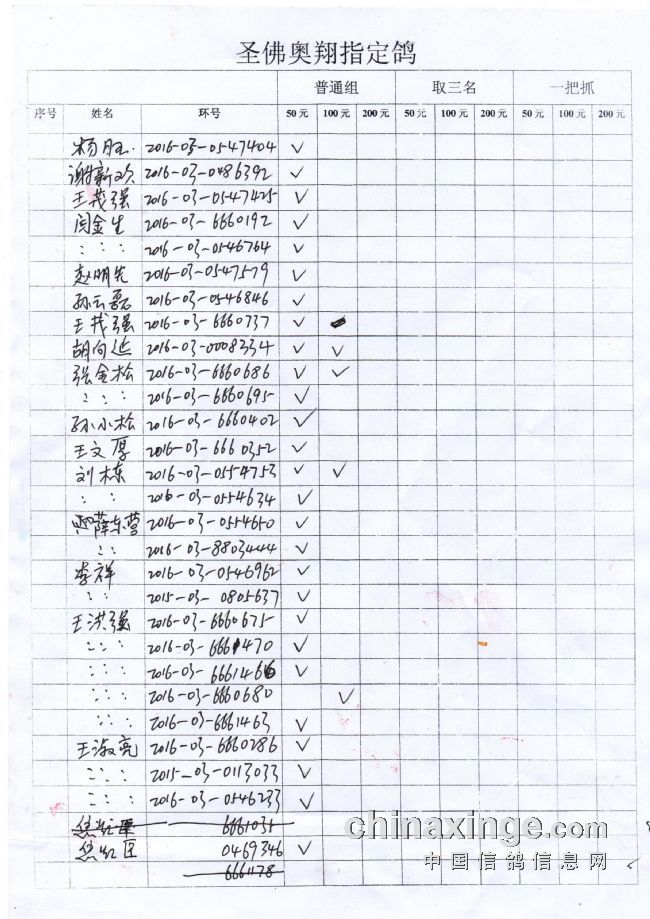 圣佛奥翔指定鸽
普通组 取三名 一把抓
序号 姓名 环号 50元 100元 200元 50元 100元 200元 50元 100元 200元
杨旺 2016-03-0547404 ✓
谢新欢 2016-03-0486392 ✓
王茂强 2016-03-0547425 ✓
闫金生 2016-03-6660192 ✓
: : : 2016-03-0546764 ✓
赵明先 2016-03-0547579 ✓
孙云磊 2016-03-0546846 ✓
王茂强 2016-03-6660737 ✓
胡向延 2016-03-0008334 ✓ ✓
张金松 2016-03-6660686 ✓ ✓
: : : 2016-03-6660695 ✓
孙小松 2016-03-6660402 ✓
王文厚 2016-03-6660352 ✓
刘栋 2016-03-0554753 ✓ ✓
: : 2016-03-0554634 ✓
薛东营 2016-03-0554650 ✓
: : 2016-03-8803444 ✓
李祥 2016-03-0546962 ✓
: : 2015-03-0805637 ✓
王洪强 2016-03-6660675 ✓
: : : 2016-03-6661470 ✓
: : : 2016-03-6661466 ✓
: : : 2016-03-6660680 ✓
: : : 2016-03-6661463 ✓
王淑亮 2016-03-6660286 ✓
: : : 2015-03-0113033 ✓
: : : 2016-03-0546233 ✓
6661035
0469346 ✓
6661178
chinaxinge.com
中国信鸽信息网